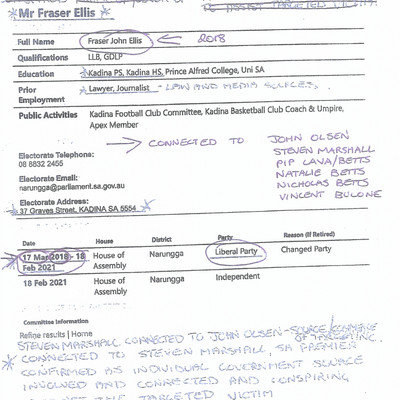 TO ASSIST TARGETED VICTIMS
* Mr Fraser Ellis *
Full Name Fraser John Ellis → 2018
Qualifications LLB, GDLP
Education * Kadina PS, Kadina HS, Prince Alfred College, Uni SA
Prior Employment * Lawyer, Journalist - LAW AND MEDIA SOURCES.
Public Activities Kadina Football Club Committee, Kadina Basketball Club Coach & Umpire, Apex Member
→ CONNECTED TO JOHN OLSEN
STEVEN MARSHALL
PIP LAVA/BETTS
NATALIE BETTS
NICHOLAS BETTS
VINCENT BULONE
Electorate Telephone:
08 8832 2455
Electorate Email:
narungga@parliament.sa.gov.au
Electorate Address:
* 37 Graves Street, KADINA SA 5554 *
Date House District Party Reason (If Retired)
17 Mar 2018 - 18 Feb 2021 House of Assembly Narungga Liberal Party Changed Party
18 Feb 2021 House of Assembly Narungga Independent
Committee Information
Refine results | Home
STEVEN MARSHALL CONNECTED TO JOHN OLSEN - SOURCE
OF TARGETING.
* CONNECTED TO STEVEN MARSHALL, SA PREMIER
CONFIRMED AS INDIVIDUAL GOVERNMENT SOURCE
INVOLVED AND CONNECTED AND CONSPIRING
TARGETED VICTIM